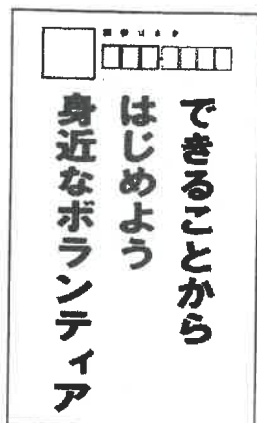 郵便はがき
できることから
はじめよう
身近なボランティア